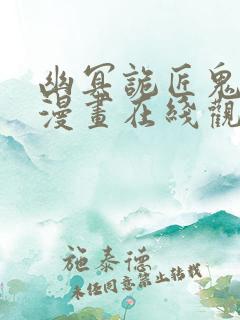 幽冥詭匠鬼
漫畫在綫觀
施泰德
未经同意禁止转载